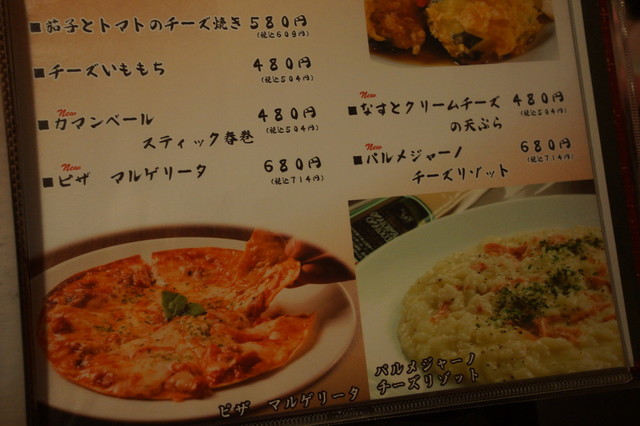 ■茄子とトマトのチーズ焼き 580円
(税込609円)
■チーズいももち 480円
(税込504円)
New
■カマンベール 480円
スティック春巻 (税込504円)
New
■ピザ マルゲリータ 680円
(税込714円)
New
■なすとクリームチーズ 480円
の天ぷら (税込504円)
New
■パルメジャーノ 680円
チーズリゾット (税込714円)
ピザ マルゲリータ
パルメジャーノ
チーズリゾット